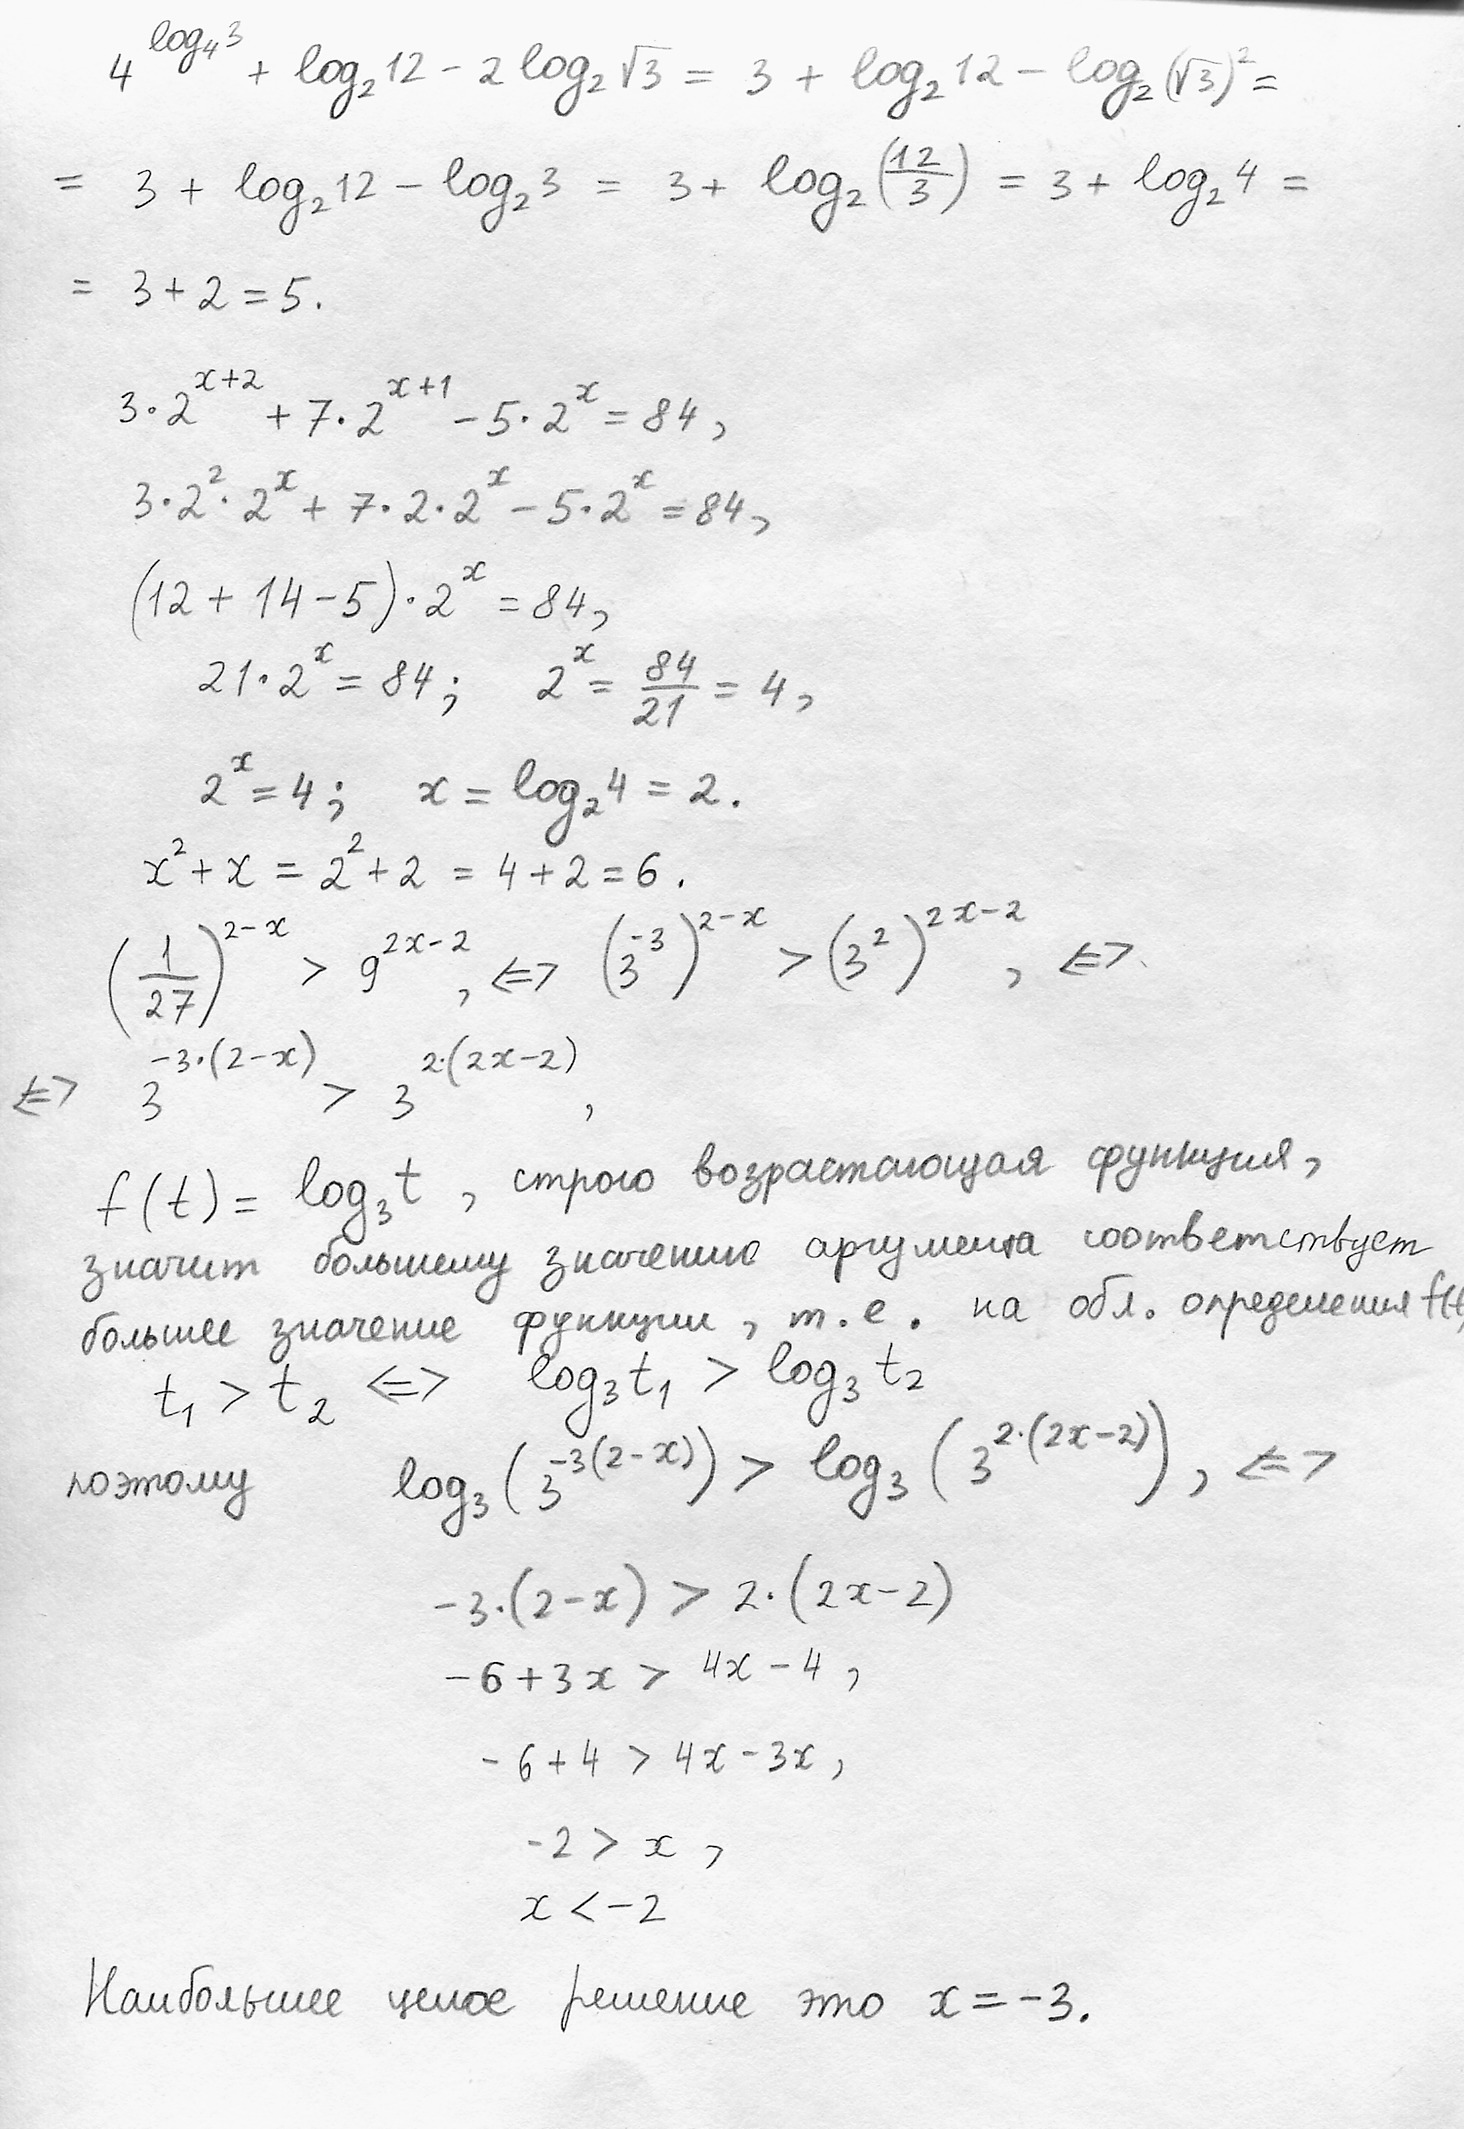 4^{log₄3} + log₂12 − 2 log₂√3 = 3 + log₂12 − log₂(√3)² =
= 3 + log₂12 − log₂3 = 3 + log₂(12/3) = 3 + log₂4 =
= 3 + 2 = 5.
3·2^{x+2} + 7·2^{x+1} − 5·2^x = 84,
3·2²·2^x + 7·2·2^x − 5·2^x = 84,
(12 + 14 − 5)·2^x = 84,
21·2^x = 84; 2^x = 84/21 = 4,
2^x = 4; x = log₂4 = 2.
x² + x = 2² + 2 = 4 + 2 = 6.
(1/27)^{2−x} > 9^{2x−2}, <=> (3^{−3})^{2−x} > (3²)^{2x−2}, <=>
<=> 3^{−3·(2−x)} > 3^{2·(2x−2)},
f(t) = log₃t, строго возрастающая функция,
значит большему значению аргумента соответствует
большее значение функции, т.е. на обл. определения f(t)
t₁ > t₂ <=> log₃t₁ > log₃t₂
поэтому log₃(3^{−3(2−x)}) > log₃(3^{2·(2x−2)}), <=>
−3·(2−x) > 2·(2x−2)
−6+3x > 4x−4,
−6+4 > 4x−3x,
−2 > x,
x < −2
Наибольшее целое решение это x = −3.